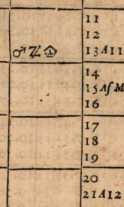 11
12
♂ 13 A 11
14
15 Aſ M
16
17
18
19
20
21 A 12